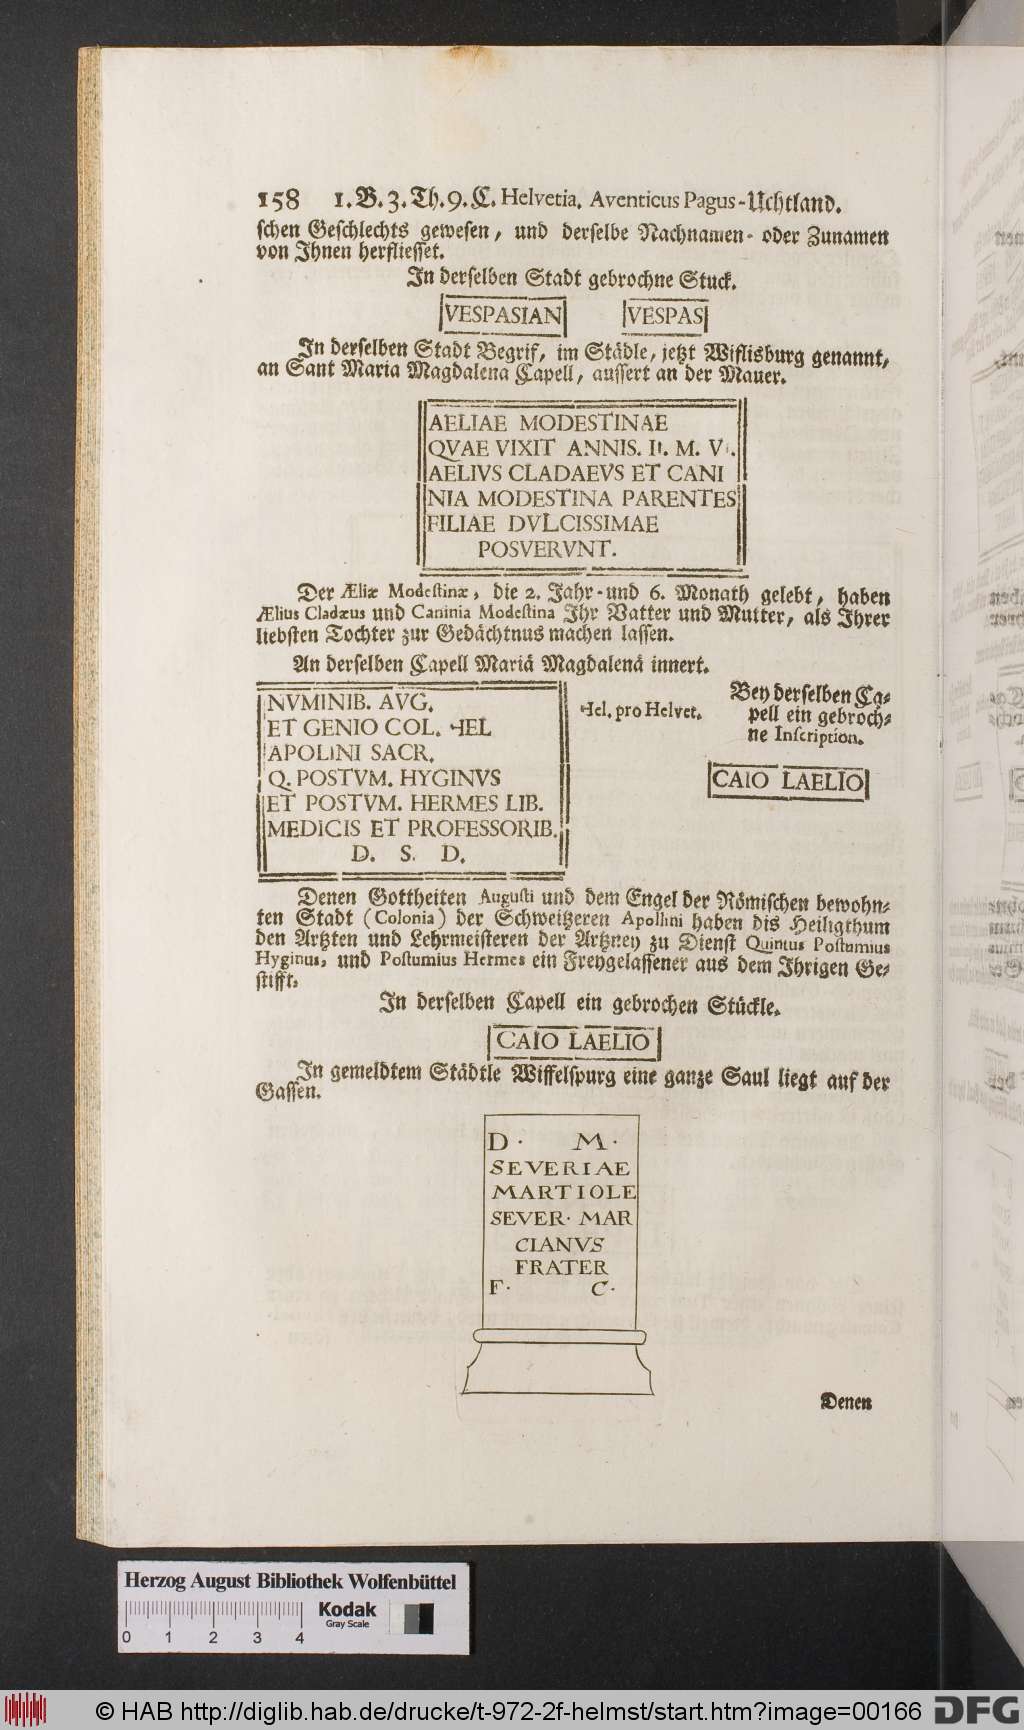 158 1. B. 3. Th. 9. C. Helvetia, Aventicus Pagus-Uchtland.
schen Geschlechts gewesen, und derselbe Nachnamen- oder Zunamen
von Ihnen herfliesset.
In derselben Stadt gebrochne Stuck.
VESPASIAN VESPAS
In derselben Stadt Begrif, im Städle, jetzt Wiflisburg genannt,
an Sant Maria Magdalena Capell, aussert an der Mauer.
AELIAE MODESTINAE
QVAE VIXIT ANNIS. II. M. VI.
AELIVS CLADAEVS ET CANI
NIA MODESTINA PARENTES
FILIAE DVLCISSIMAE
POSVERVNT.
Der Æliæ Modestinæ, die 2. Jahr- und 6. Monath gelebt, haben
Ælius Cladæus und Caninia Modestina Ihr Vatter und Mutter, als Ihrer
liebsten Tochter zur Gedächtnus machen lassen.
An derselben Capell Mariä Magdalenä innert.
NVMINIB. AVG.
ET GENIO COL. HEL
APOLINI SACR.
Q. POSTVM. HYGINVS
ET POSTVM. HERMES LIB.
MEDICIS ET PROFESSORIB.
D. S. D.
Hel. pro Helvet.
Bey derselben Ca-
pell ein gebroch-
ne Inscription.
CAIO LAELIO
Denen Gottheiten Augusti und dem Engel der Römischen bewohn-
ten Stadt (Colonia) der Schweitzeren Apollini haben dis Heiligthum
den Artzten und Lehrmeisteren der Artzney zu Dienst Quintus Postumius
Hyginus, und Postumius Hermes ein Freygelassener aus dem Ihrigen Ge-
stifft.
In derselben Capell ein gebrochen Stückle.
CAIO LAELIO
In gemeldtem Städtle Wiffelspurg eine ganze Saul liegt auf der
Gassen.
D. M.
SEVERIAE
MARTIOLE
SEVER. MAR
CIANVS
FRATER
F. C.
Denen
Herzog August Bibliothek Wolfenbüttel
Kodak
Gray Scale
0 1 2 3 4
© HAB http://diglib.hab.de/drucke/t-972-2f-helmst/start.htm?image=00166 DFG